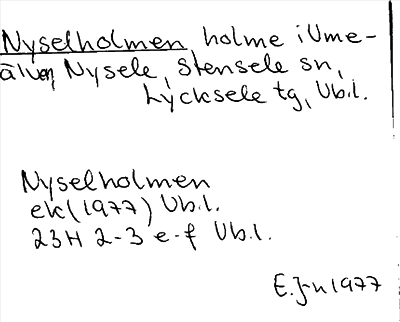 Nyselholmen, holme i Ume-
älven, Nysele, Stensele sn,
Lycksele tg, Vb.l.
Nyselholmen
ek (1977) Vb.l.
23H 2-3 e-f Vb.l.
E. J-n 1977